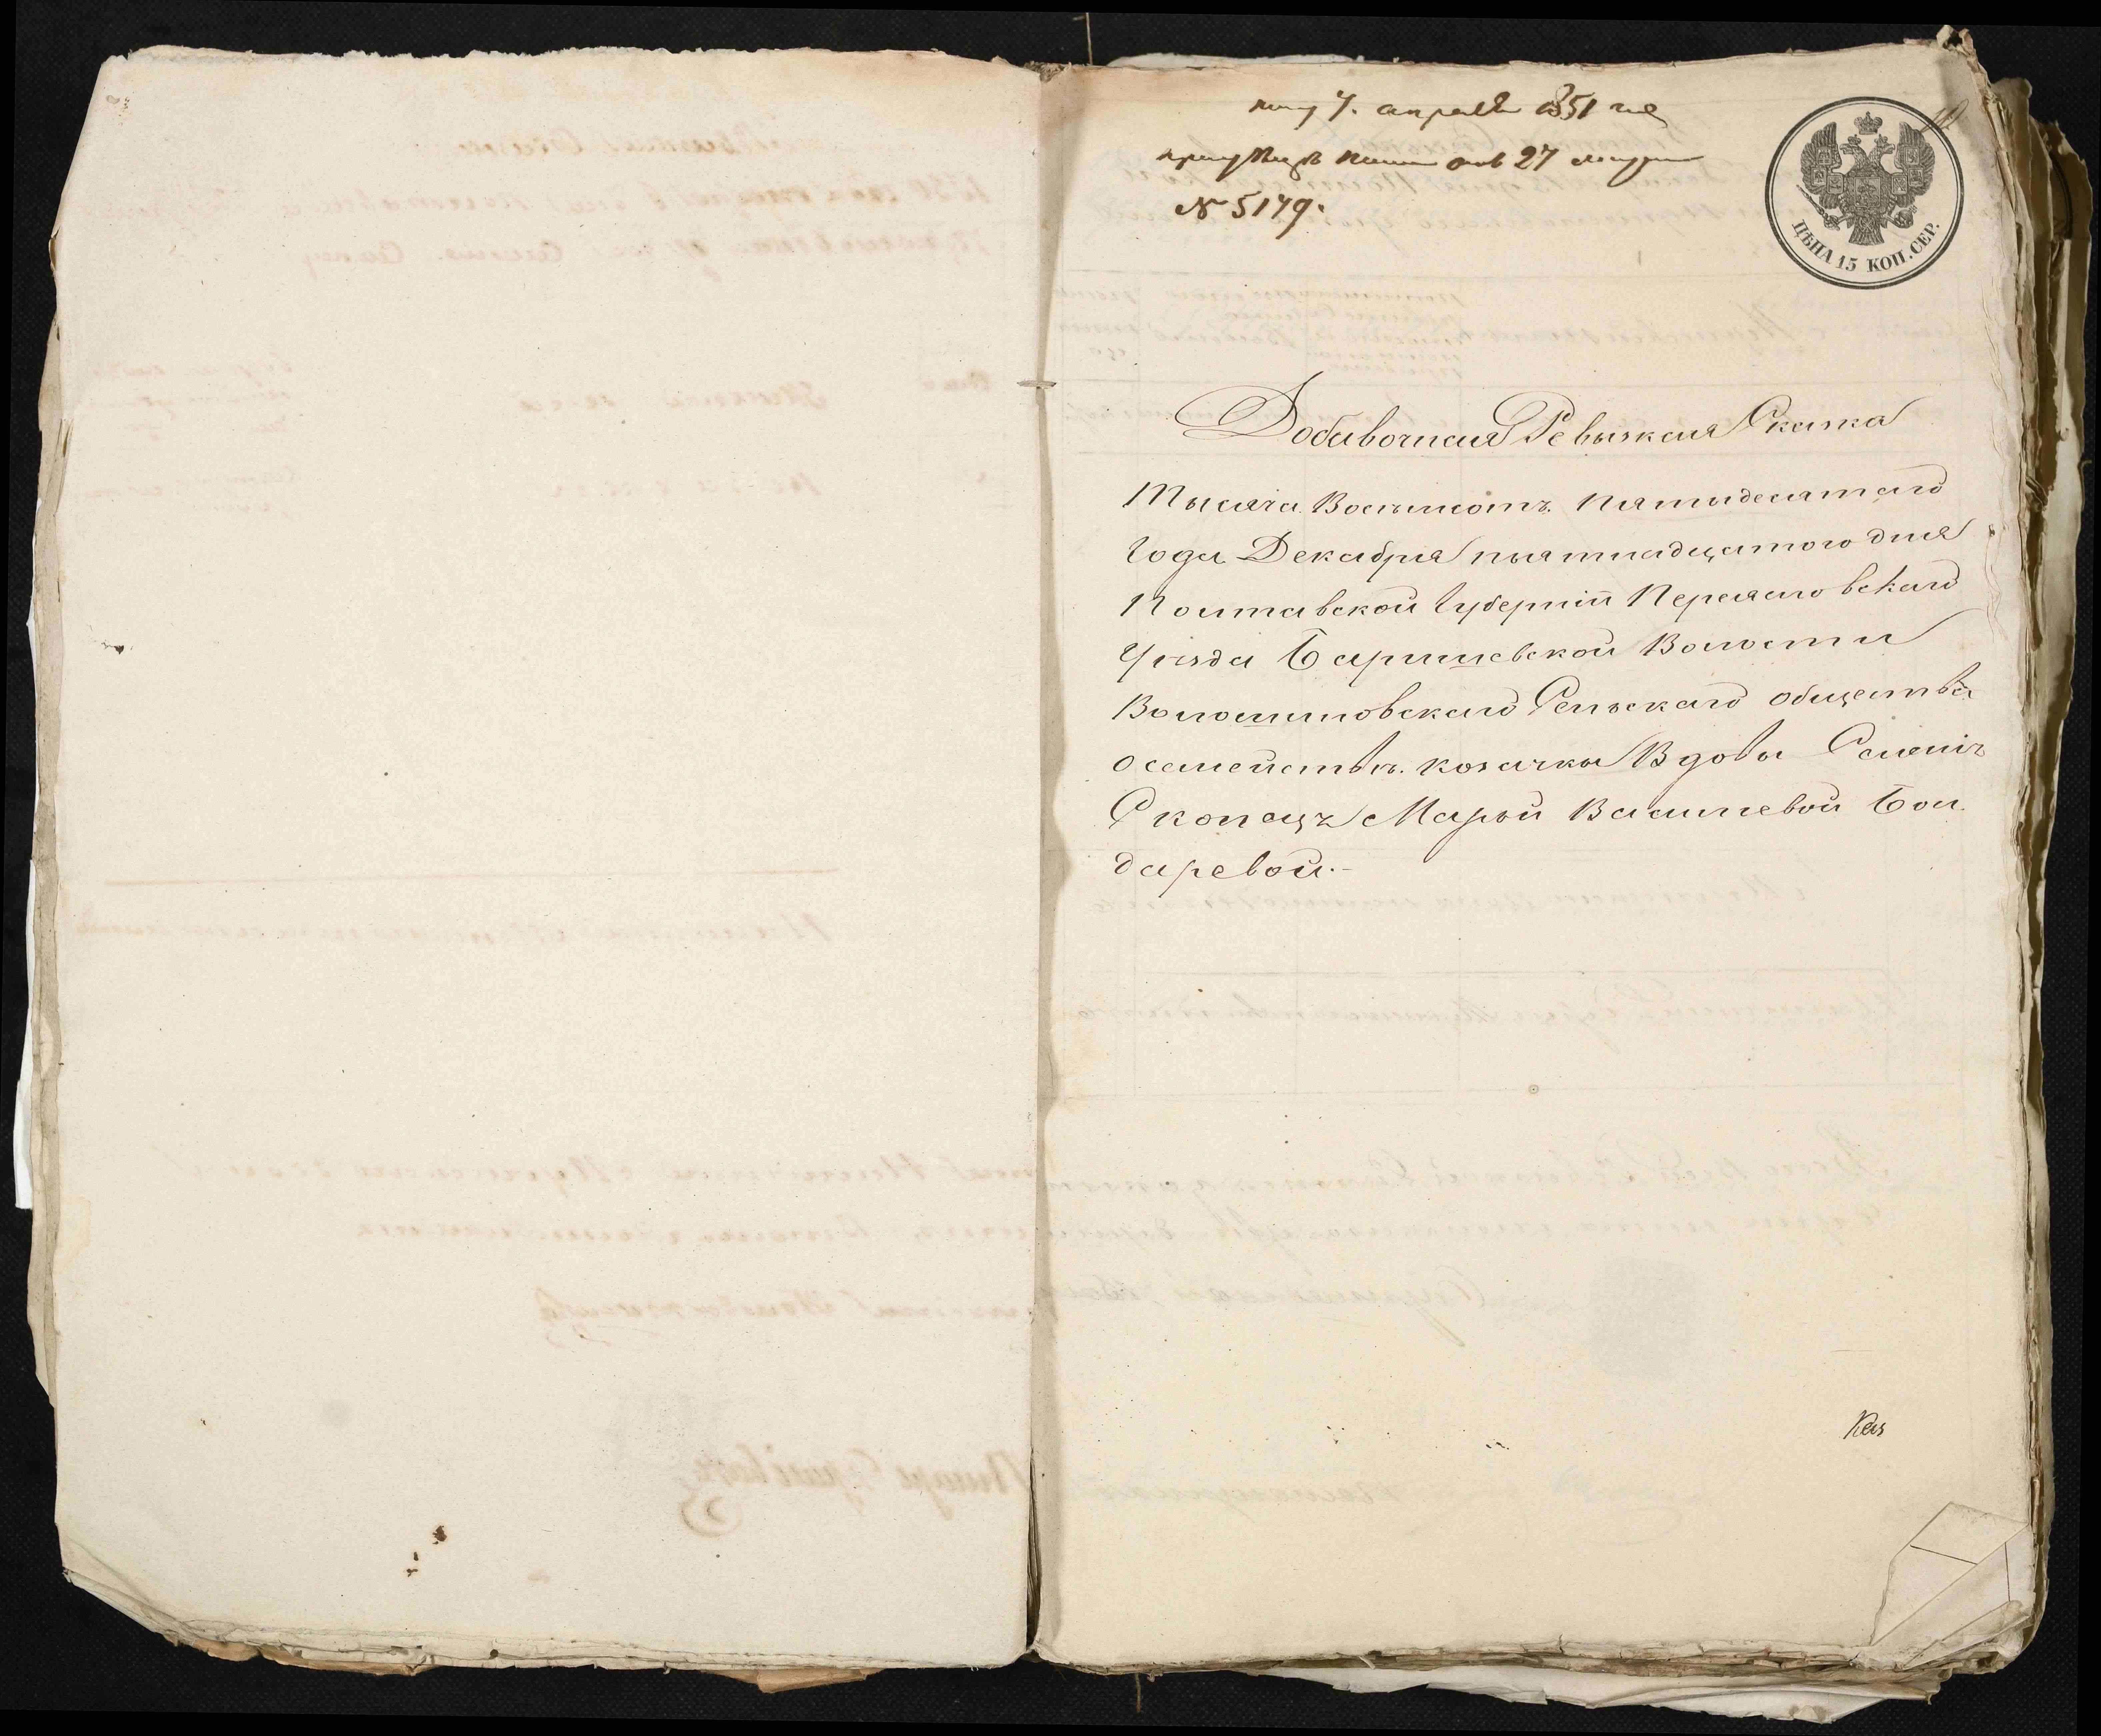 апреля 1851 года
27
№ 5179.
ЦѢНА 15 КОП. СЕР.
Добавочная Ревызкая Сказка
Тысяча Восемьсотъ Пятидесятаго
Года Декабря пьятнадцатого дня
Полтавской Губерніи Переясловскаго
Уѣзда Баришевской Волости
Волошиновскаго Сельскаго общества
о семействѣ козачки Вдовы
Скопецъ Марьи Василевой Бон
даревой.-
Каз